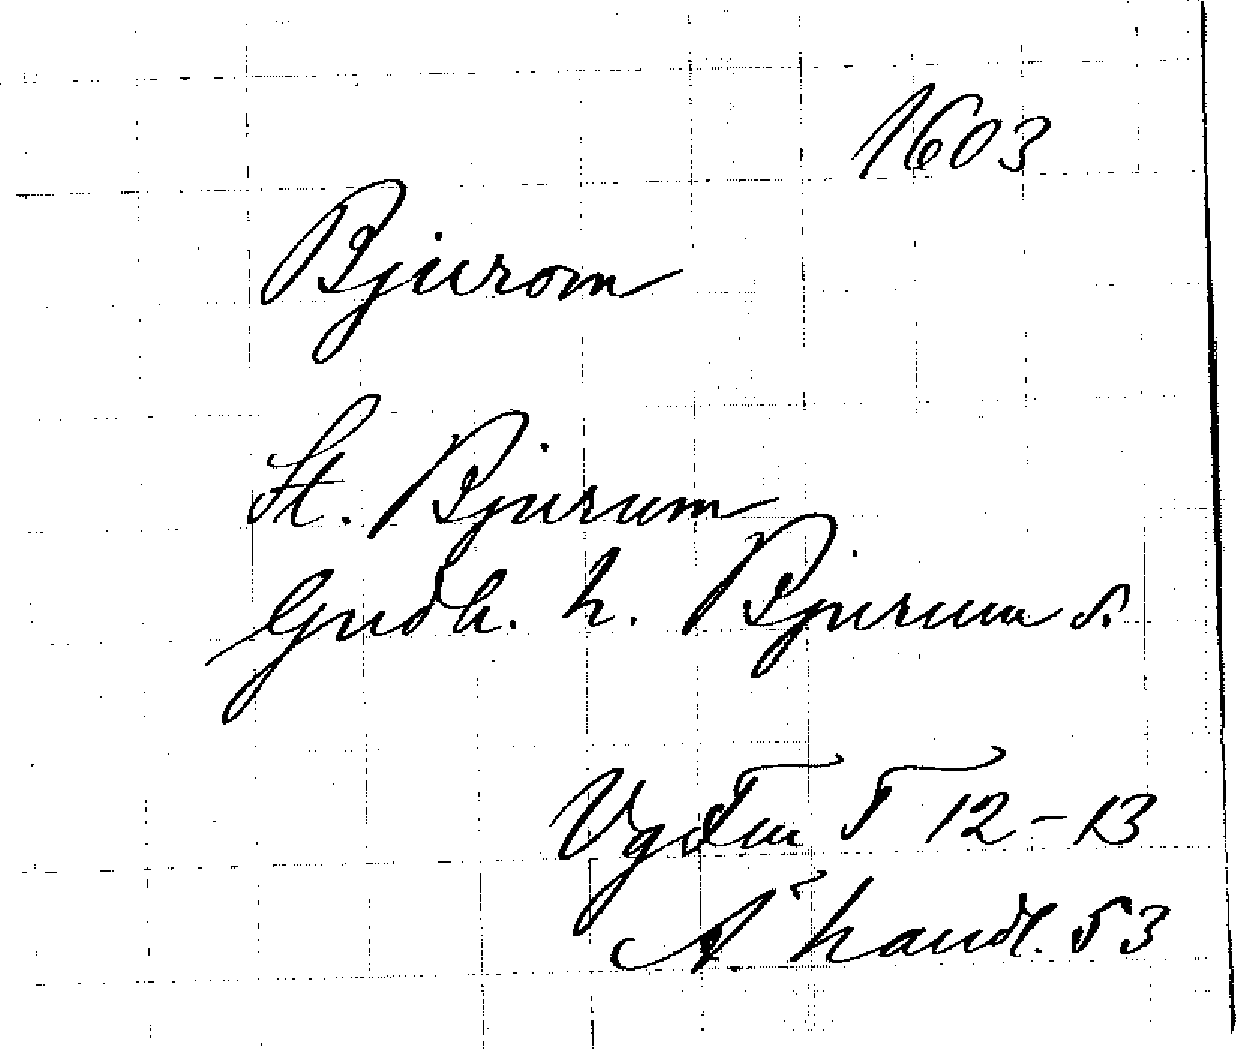 1603
Bjurom
St. Bjurum
Gudh. h. Bjurum s.
5 12-13
handl. 53